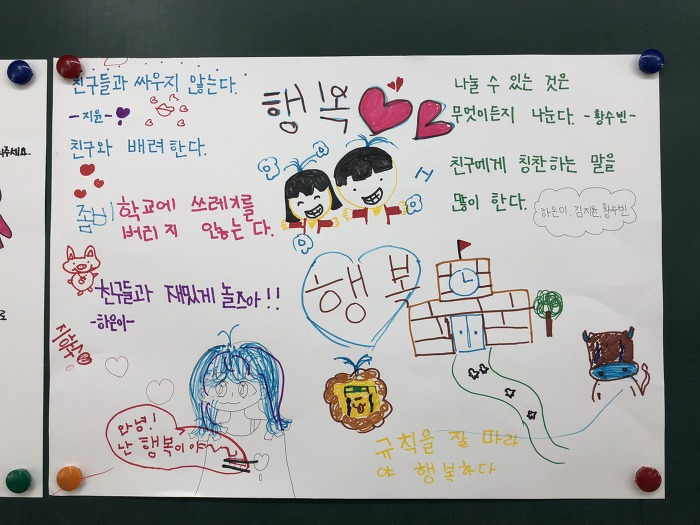 친구들과 싸우지 않는다.
-지윤-
친구와 배려한다.
행복
나눌 수 있는 것은
무엇이든지 나눈다. -황수빈-
친구에게 칭찬하는 말을
많이 한다.
하은이, 김지윤, 황수빈
학교에 쓰레기를
버리지 않는다.
친구들과 재밌게 놀즈아!!
-하은이-
행복
안녕!
난 행복이야~
규칙을 잘 따라
야 행복하다.